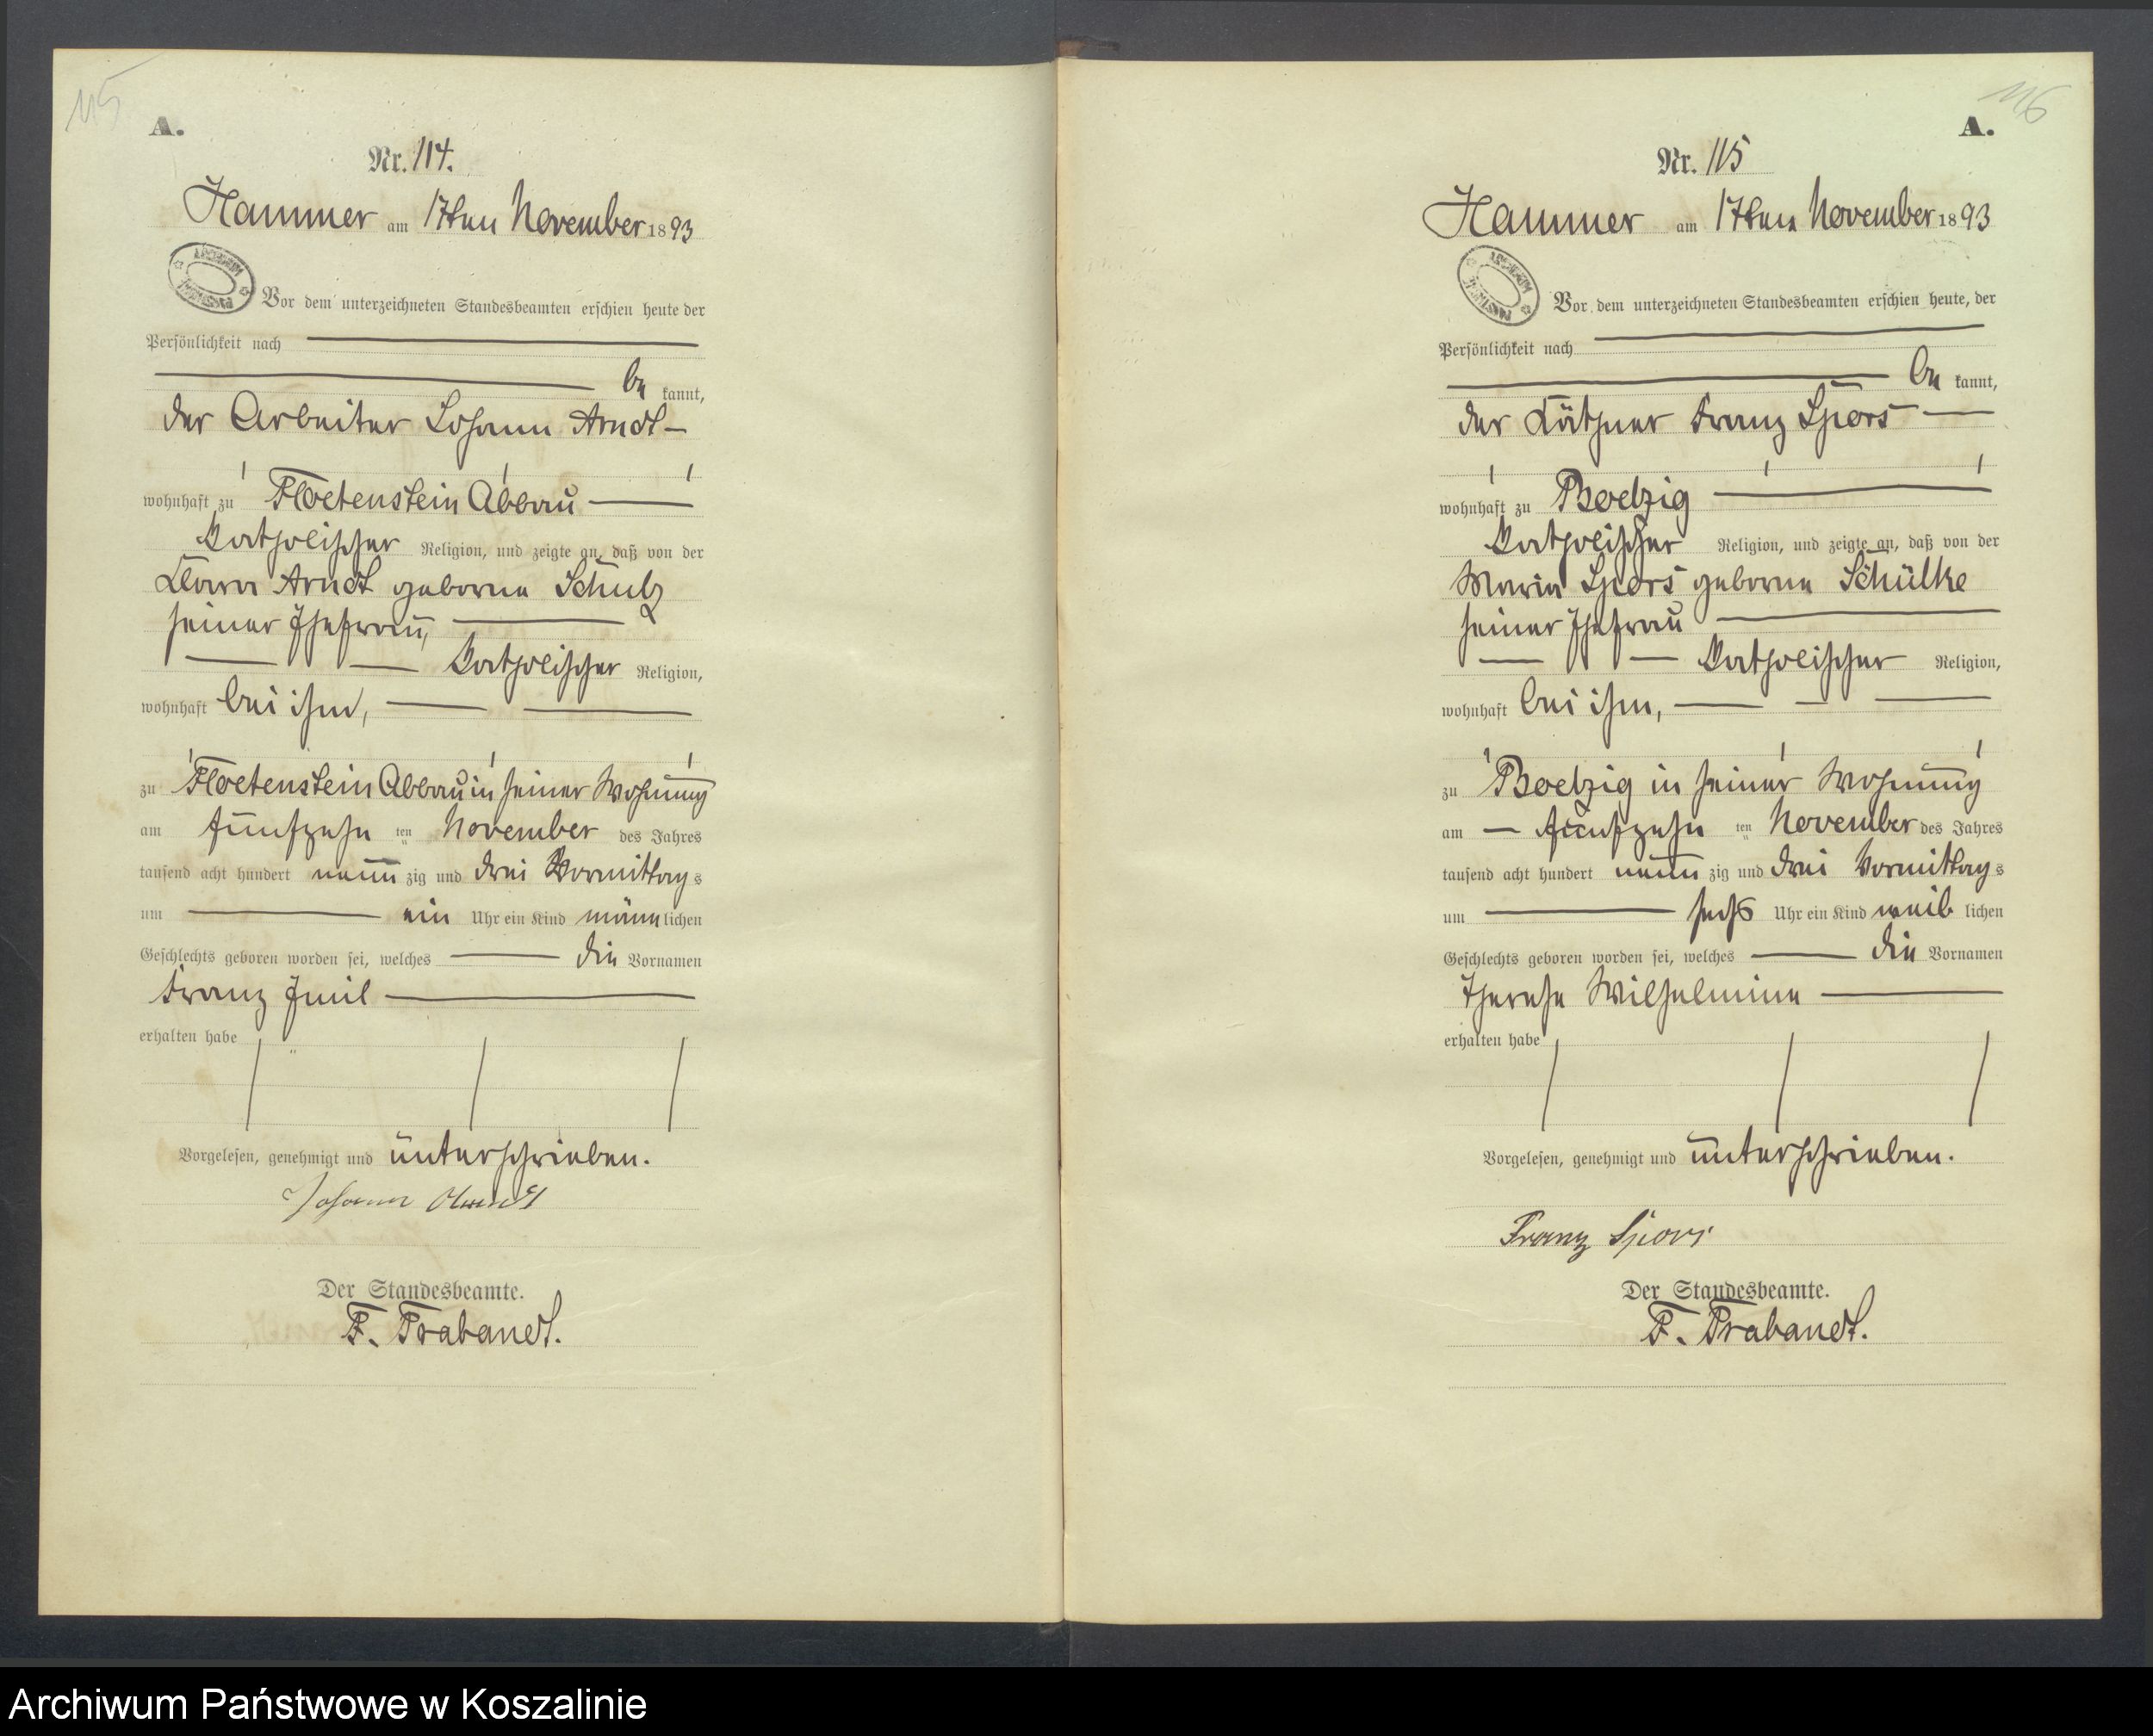 115
A.
Nr. 114.
Hammer am 17ten November 1893
Vor dem unterzeichneten Standesbeamten erschien heute der
Persönlichkeit nach
be kannt,
der Arbeiter Johann Arndt
wohnhaft zu Floetenstein Abbau
katholischer Religion, und zeigte an, daß von der
Clara Arndt geborne Schulz
seiner Ehefrau,
katholischer Religion,
wohnhaft bei ihm,
zu Floetenstein Abbau in seiner Wohnung
am fünfzehn ten November des Jahres
tausend acht hundert neun zig und drei Vormittags
um ein Uhr ein Kind männlichen
Geschlechts geboren worden sei, welches die Vornamen
Franz Emil
erhalten habe
Vorgelesen, genehmigt und unterschrieben.
Johann Arndt
Der Standesbeamte.
F. Trabandt.
116
A.
Nr. 115
Hammer am 17ten November 1893
ARCHIWUM PAŃSTWOWE
Vor dem unterzeichneten Standesbeamten erschien heute, der
Persönlichkeit nach
be kannt,
der Käthner Franz Spors
wohnhaft zu Boelzig
katholischer Religion, und zeigte an, daß von der
Maria Spors geborne Schülke
seiner Ehefrau
katholischer Religion,
wohnhaft bei ihm,
zu Boelzig in seiner Wohnung
am fünfzehn ten November des Jahres
tausend acht hundert neun zig und drei Vormittags
um sechs Uhr ein Kind weib lichen
Geschlechts geboren worden sei, welches die Vornamen
Therese Wilhelmine
erhalten habe
Vorgelesen, genehmigt und unterschrieben.
Franz Spors
Der Standesbeamte.
F. Trabandt.
Archiwum Państwowe w Koszalinie